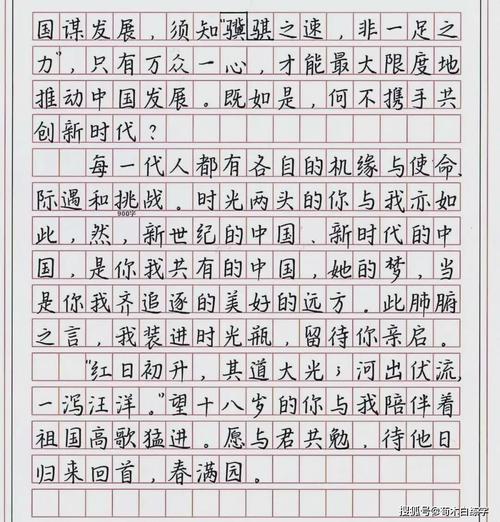 国谋发展，须知"骥骐之速，非一足之
力"，只有万众一心，才能最大限度地
推动中国发展。既如是，何不携手共
创新时代？
每一代人都有各自的机缘与使命，
际遇和挑战。时光两头的你与我亦如
900字
此，然，新世纪的中国、新时代的中
国，是你我共有的中国，她的梦，当
是你我齐追逐的美好的远方。此肺腑
之言，我装进时光瓶，留待你亲启。
"红日初升，其道大光；河出伏流，
一泻汪洋。"望十八岁的你与我陪伴着
祖国高歌猛进。愿与君共勉，待他日
归来回首，春满园。
搜狐号@荀木白练字